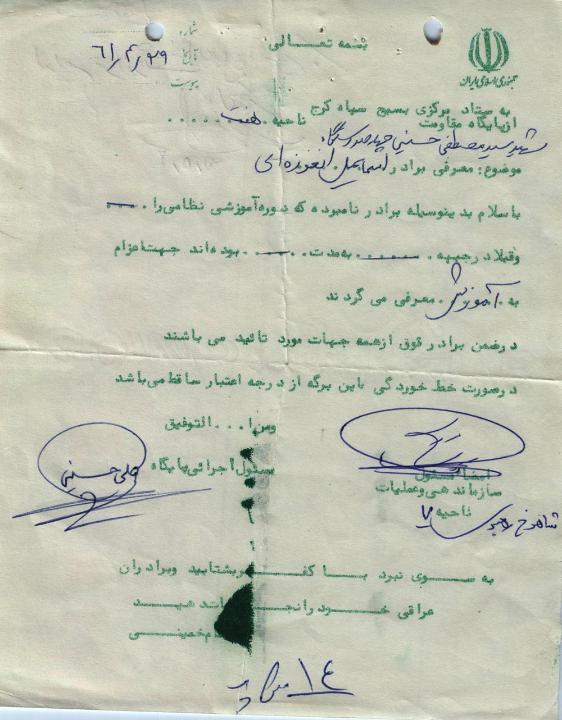 بسمه تعالی
شماره
تاریخ ۶۱/۴/۲۹
پیوست
جمهوری اسلامی ایران
به ستاد مرکزی بسیج سپاه کرج
از پایگاه مقاومت ناحیه . هفت . . . . .
شهید سید مصطفی حسینی چهارصد دستگاه
موضوع : معرفی برادر اسماعیل
با سلام بدینوسیله برادر نامبرده که دوره آموزشی نظامی را . ــ .
و قبلا در جبهه . ــ . بمدت . . ــ . بوده اند جهت اعزام
به . آموزش . معرفی می گردند
در ضمن برادر فوق از همه جهات مورد تائید می باشند
در صورت خط خوردگی باین برگه از درجه اعتبار ساقط می باشد
و من ا . . . التوفیق
مسئول اجرائی پایگاه
علی حسینی
امضا مسئول
سازماندهی و عملیات
ناحیه ۷
شاهرخ
به سوی نبرد با کفر بشتابید و برادران
عراقی خود را نجات دهید
امام خمینی